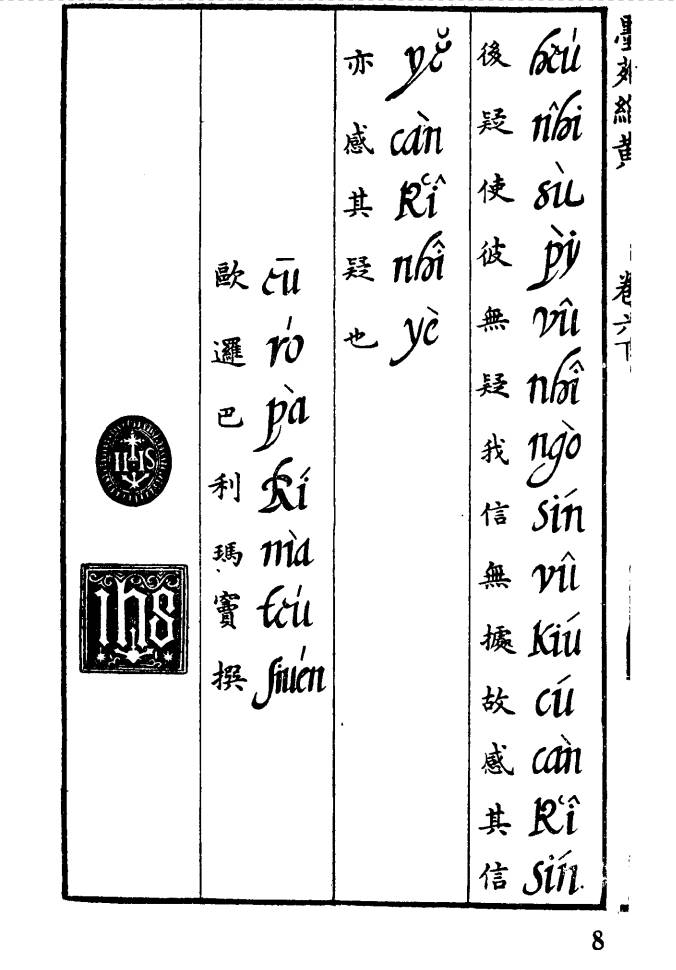 墨苑緇黃 卷六下
後疑使彼無疑我信無據故感其信
heú nhî sù pỳ vû nhî ngò sín vû kiú cú càn k'î sín.
亦感其疑也
yĕ càn k'î nhî yè
歐邏巴利瑪竇撰
ēu ró pà lí mà téu siuén
IHS
ihs
8